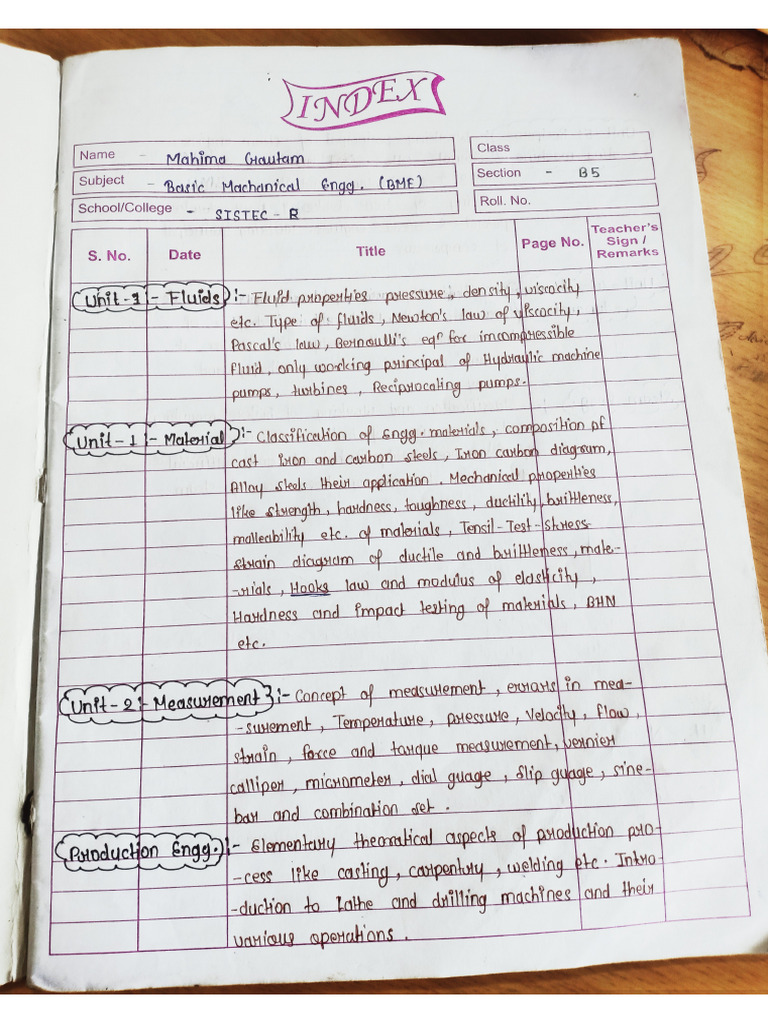 INDEX
Name - Mahima Gautam
Class
Subject - Basic Machanical Engg. (BME)
Section - B5
School/College - SISTEC - R
Roll. No.
S. No. Date Title Page No. Teacher's Sign / Remarks
Unit-3 - Fluids :- Fluid properties pressure, density, viscocity
etc. Type of fluids, Newton's law of viscocity,
Pascal's law, Bernoulli's eqn for imcompressible
fluid, only working principal of Hydraulic machine
pumps, turbines, Reciprocaling pumps.
Unit-1 - Material :- Classification of Engg. materials, composition of
cast iron and carbon steels, Iron carbon diagram,
Alloy steels their application. Mechanical properties
like strength, hardness, toughness, ductility, brittleness,
malleability etc. of materials, Tensil-Test-stress
strain diagram of ductile and brittleness, mate-
-rials, Hooks law and modulus of elasticity,
Hardness and impact testing of materials, BHN
etc.
Unit-2 - Measurement :- Concept of measurement, errors in mea-
-surement, Temperature, pressure, Velocity, flow,
strain, force and tarque measurement, vernier
calliper, micrometer, dial guage, slip guage, sine-
bar and combination set.
Production Engg. :- Elementary theoratical aspects of production pro-
-cess like casting, carpentry, welding etc. Intro-
-duction to Lathe and drilling machines and their
various operations.